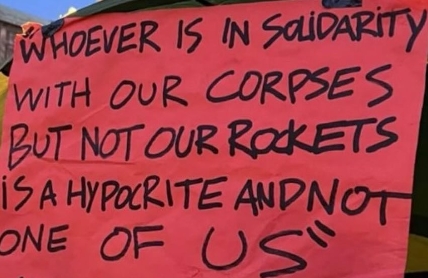 "WHOEVER IS IN SOLIDARITY
WITH OUR CORPSES
BUT NOT OUR ROCKETS
IS A HYPOCRITE AND NOT
ONE OF US"